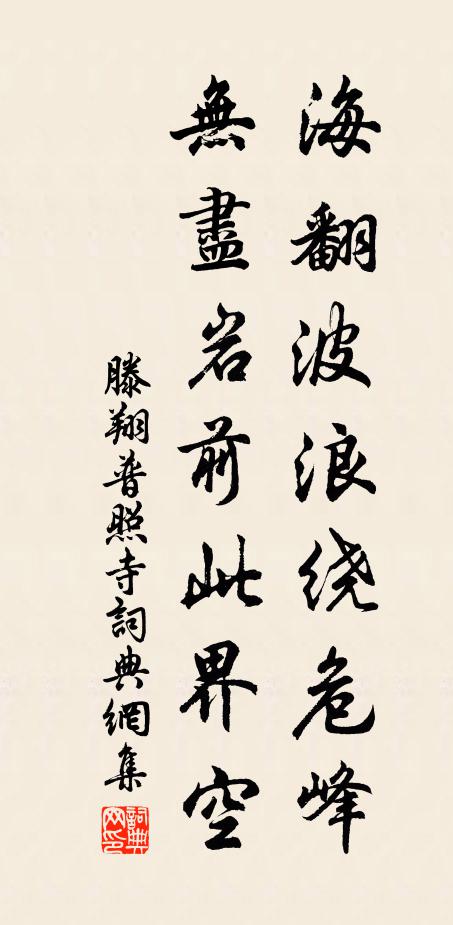 海翻波浪绕危峰
無盡岩前此界空
滕翔普照寺詞典網集
詞典网印